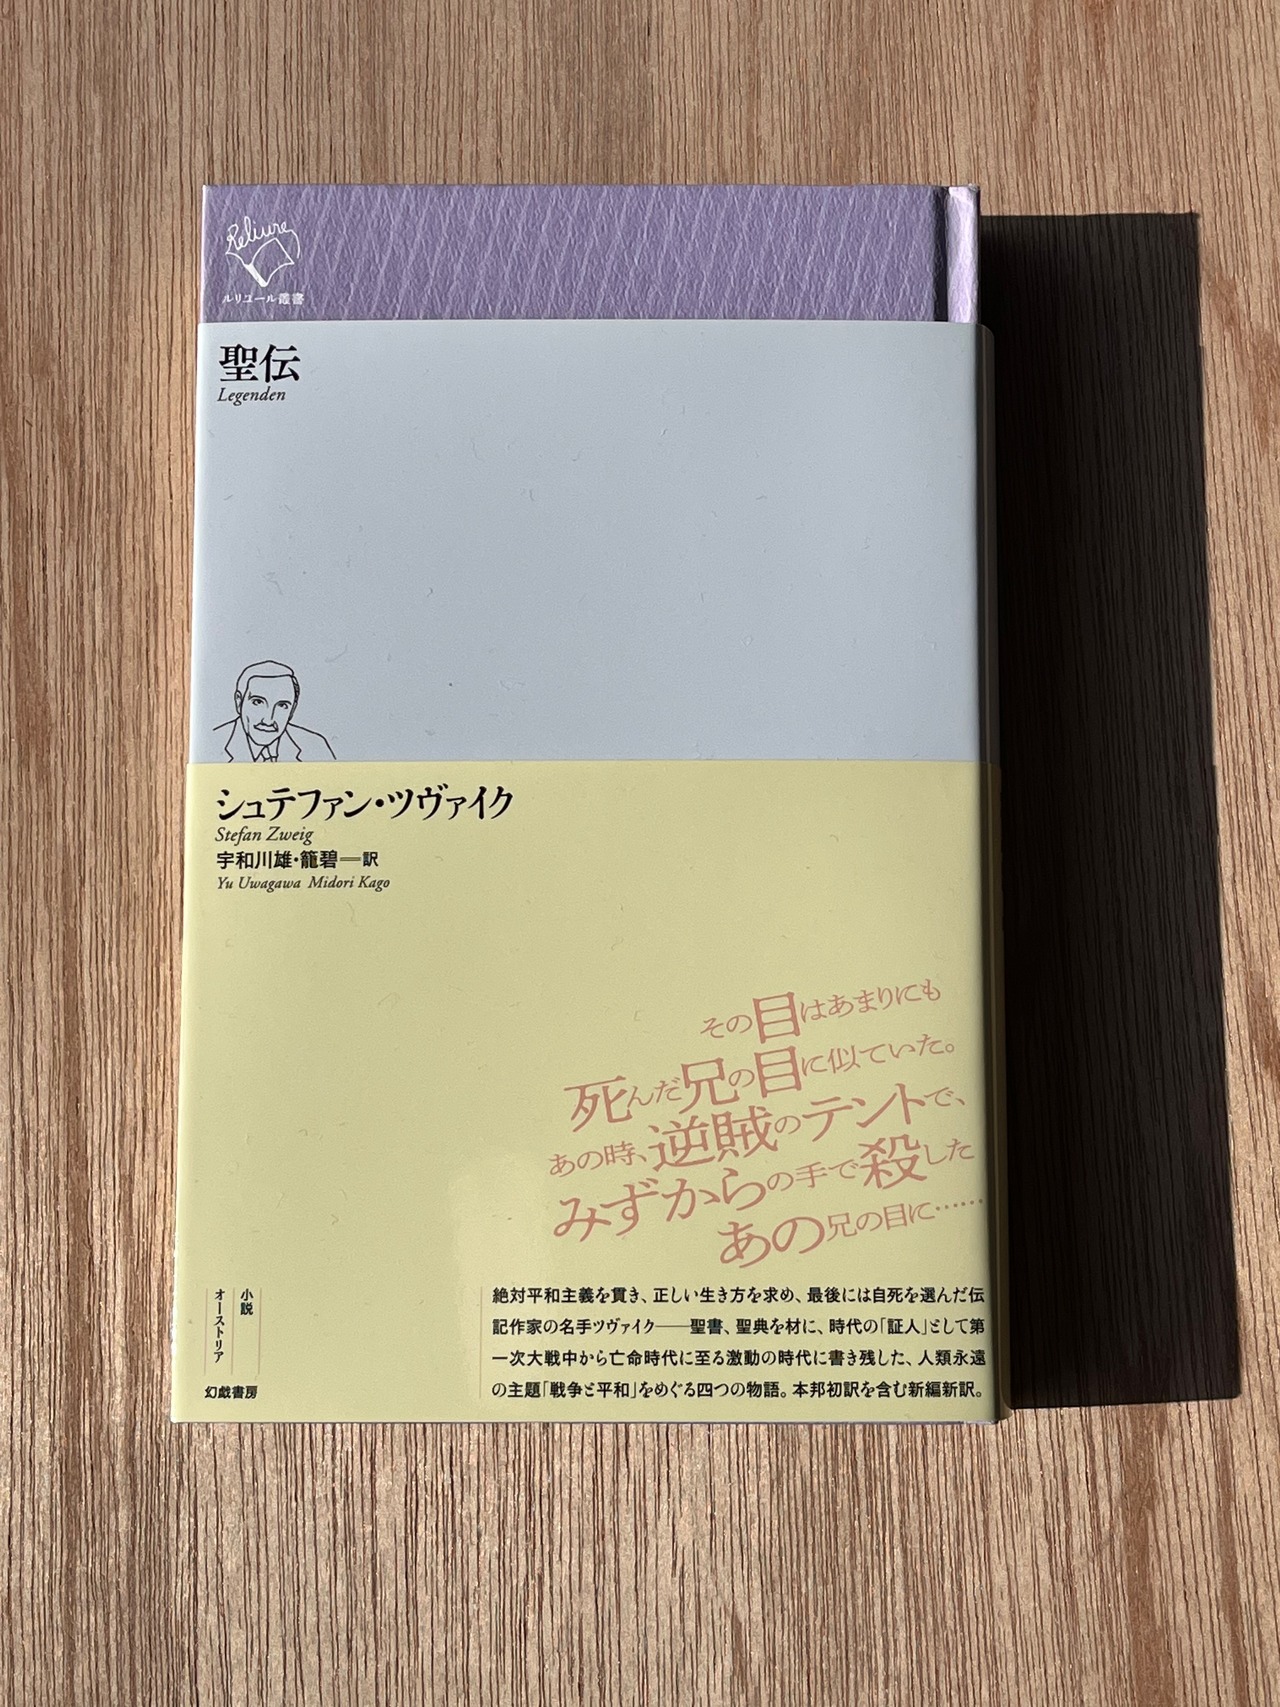 Reliure
ルリユール叢書
聖伝
Legenden
シュテファン・ツヴァイク
Stefan Zweig
宇和川雄・籠碧──訳
Yu Uwagawa Midori Kago
その目はあまりにも
死んだ兄の目に似ていた。
あの時、逆賊のテントで、
みずからの手で殺した
あの兄の目に……
小説
オーストリア
幻戯書房
絶対平和主義を貫き、正しい生き方を求め、最後には自死を選んだ伝
記作家の名手ツヴァイク──聖書、聖典を材に、時代の「証人」として第
一次大戦中から亡命時代に至る激動の時代に書き残した、人類永遠
の主題「戦争と平和」をめぐる四つの物語。本邦初訳を含む新編新訳。